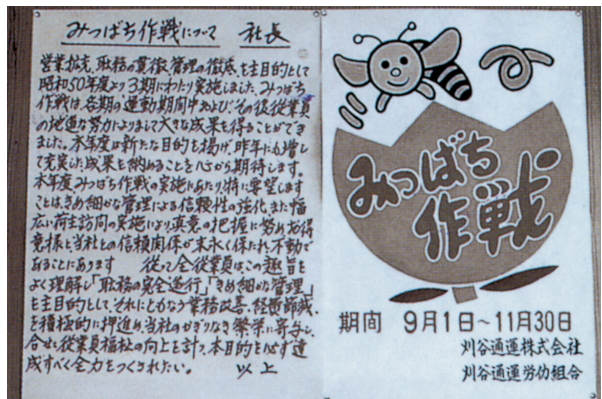 みつばち作戦について 社長
営業拡充、取務の貫徹、管理の徹底、を主目的として
昭和50年度より3期にわたり実施しました。みつばち
作戦は、各期の運動期間中および、その後従業員
の地道な努力によりまして大きな成果を得ることができ
ました。本年度は新たな目的を掲げ、昨年にも増し
て充実した成果を納めることを心から期待します。
本年度みつばち作戦の実施にあたり、特に要望します
ことはきめ細かな管理による信頼性の強化、また幅
広い荷主訪問の実施により、真意の把握に努めお得
意様と当社との信頼関係が末永く保たれ、不動で
あることにあります 従って全従業員はこの趣旨を
よく理解し「取務の完全遂行」「きめ細かな管理」
を主目的として、それにともなう業務改善、経費節減、
を積極的に押進め、当社のかぎりなき繁栄に寄与し、
合せて従業員福祉の向上を計り、本目的を必ず達
成すべく全力をつくされたい。 以上
みつばち
作戦
期間 9月1日~11月30日
刈谷通運株式会社
刈谷通運労仂組合